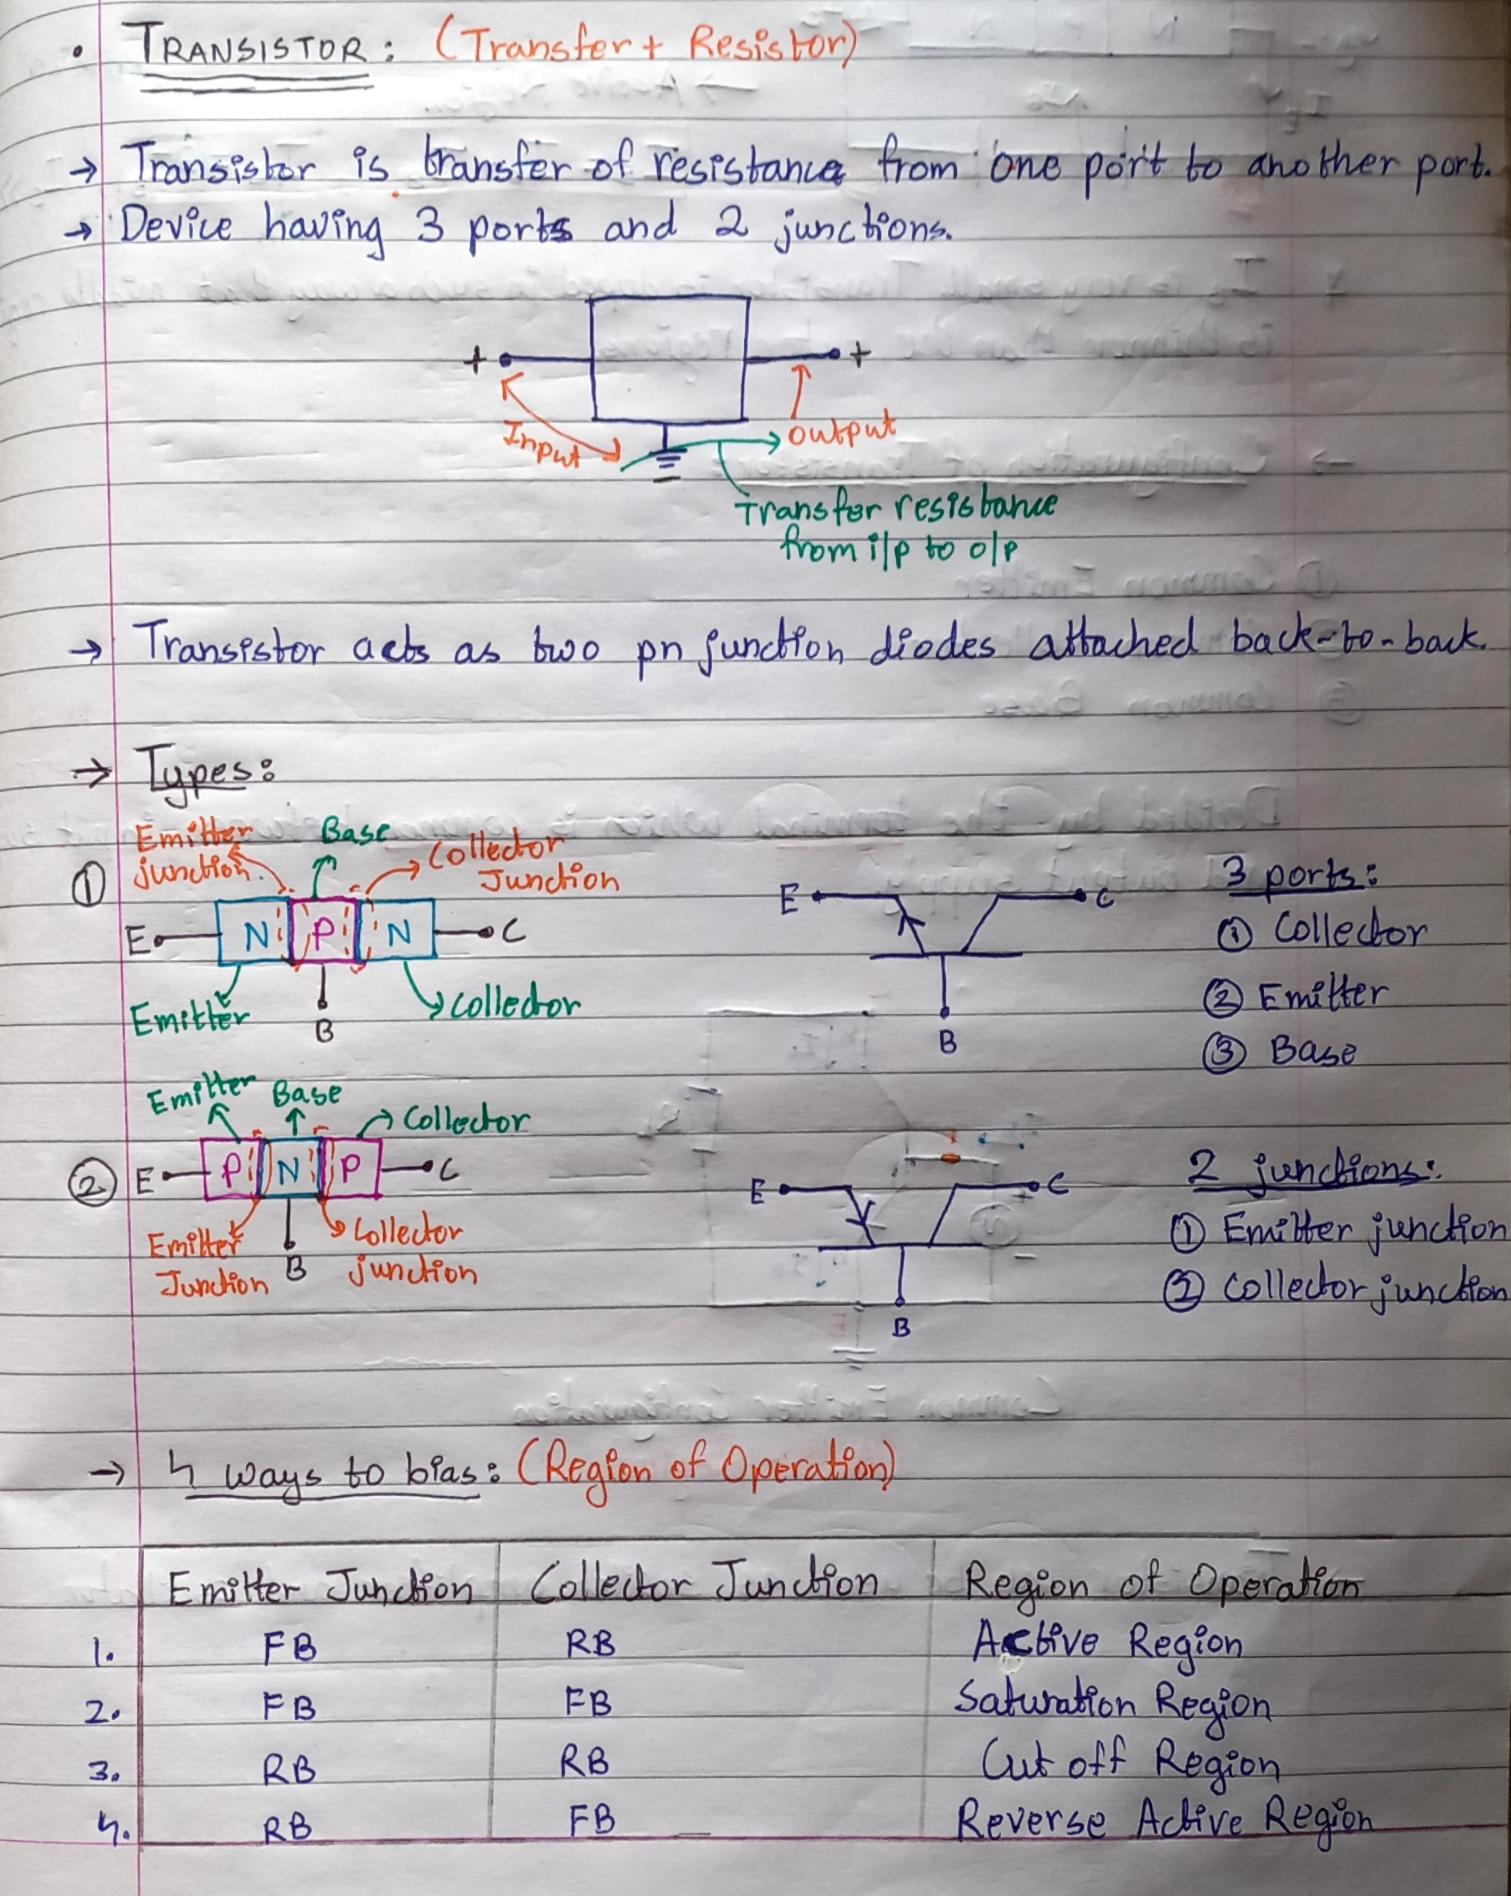 • TRANSISTOR: (Transfer + Resistor)
→ Transistor is transfer of resistance from one port to another port.
→ Device having 3 ports and 2 junctions.
+ +
Input
Output
Transfer resistance
from i/p to o/p
→ Transistor acts as two pn junction diodes attached back-to-back.
→ Types:
①
Emitter
junction
Base
Collector
Junction
E N P N C
Emitter
B
Collector
E C
B
3 ports:
① Collector
② Emitter
③ Base
②
Emitter
Base
Collector
E P N P C
Emitter
Junction
B
Collector
junction
E C
B
2 junctions:
① Emitter junction
② Collector junction
→ 4 ways to bias: (Region of Operation)
Emitter Junction Collector Junction Region of Operation
1. FB RB Active Region
2. FB FB Saturation Region
3. RB RB Cut off Region
4. RB FB Reverse Active Region